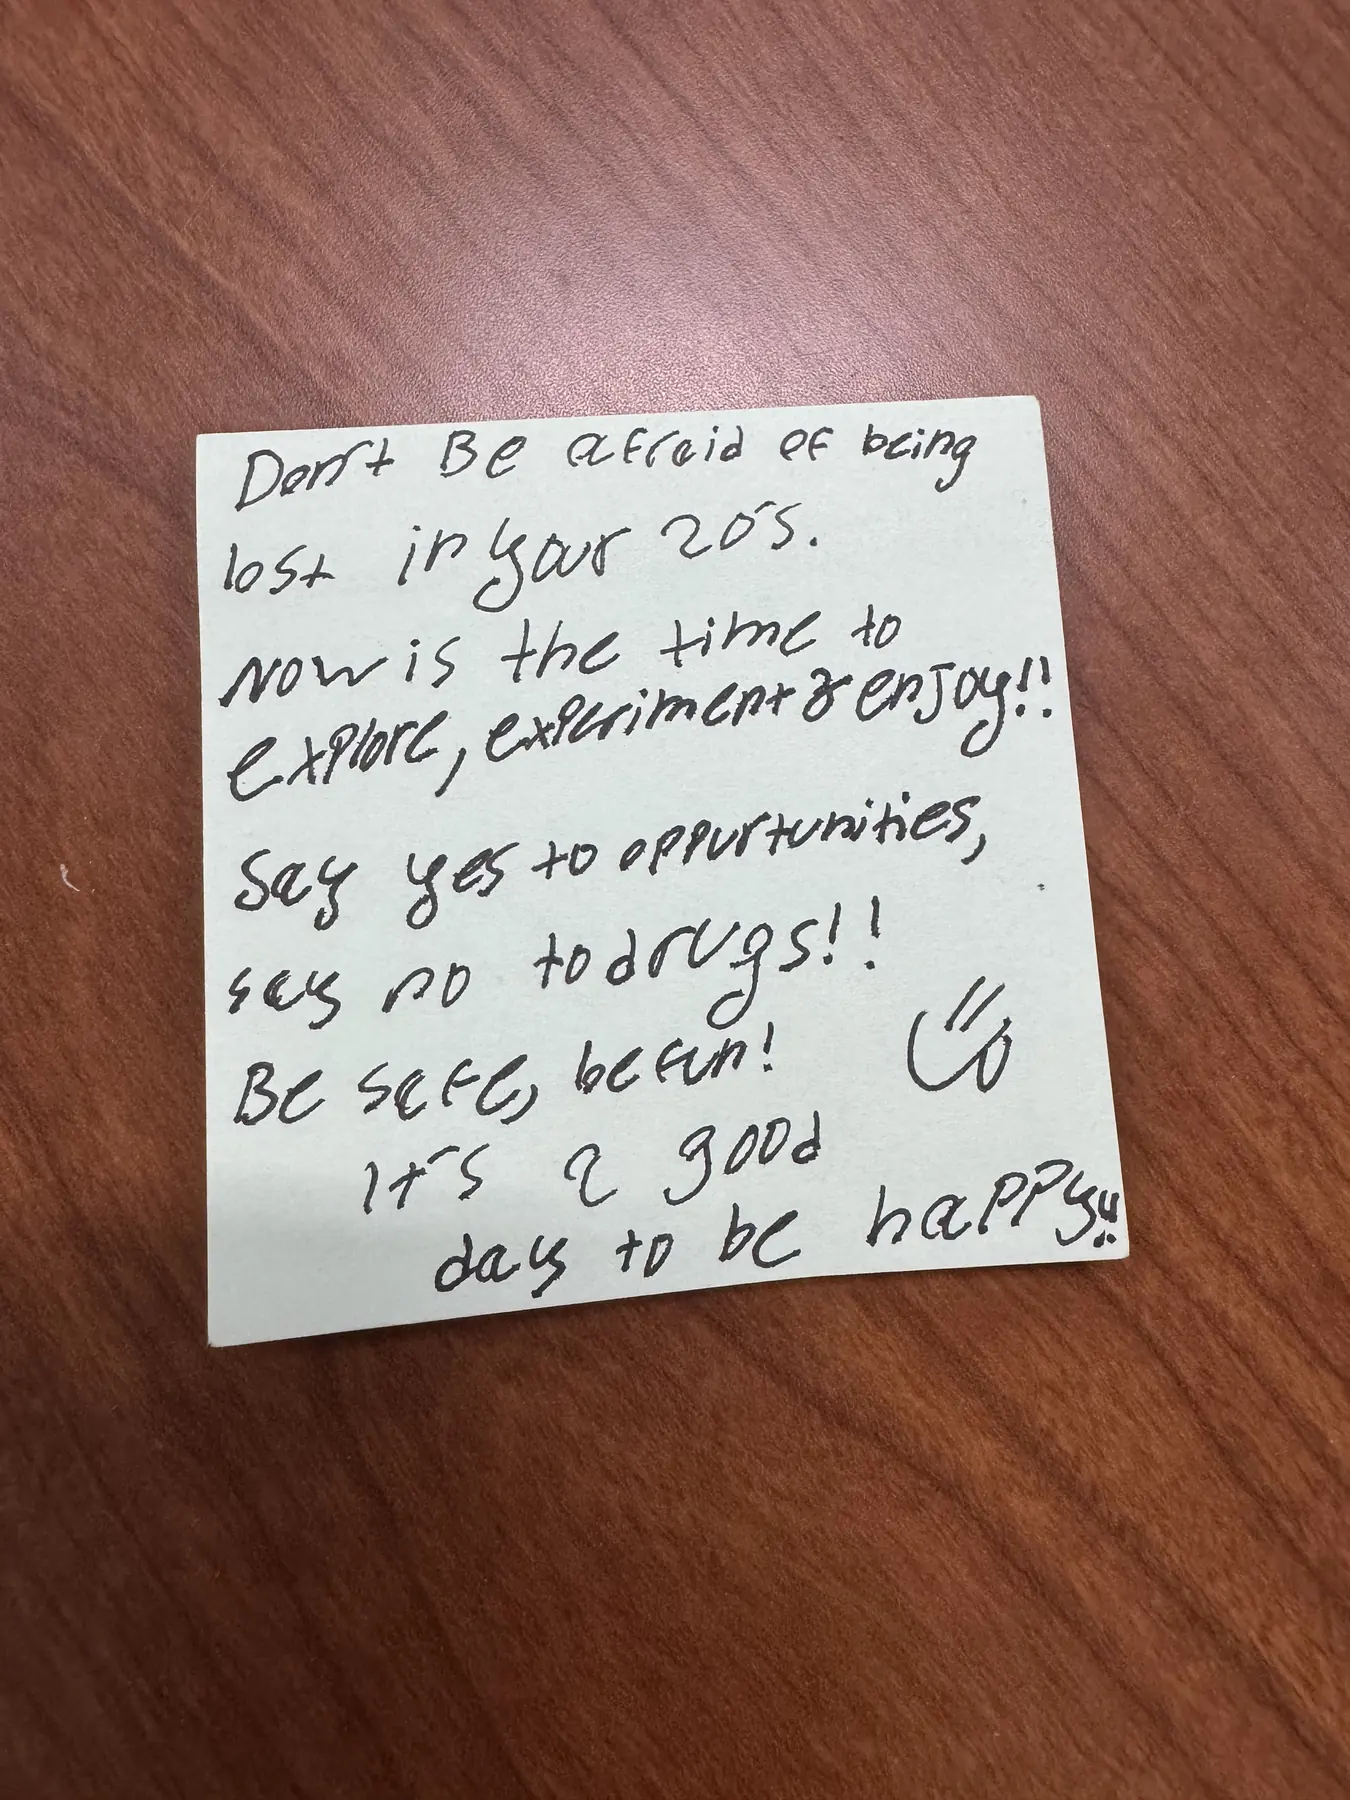 Don't Be afraid of being
lost in your 20's.
Now is the time to
explore, experiment & enjoy!!
Say yes to oppurtunities,
say no to drugs!!
Be safe, be fun!
It's a good
day to be happy!!